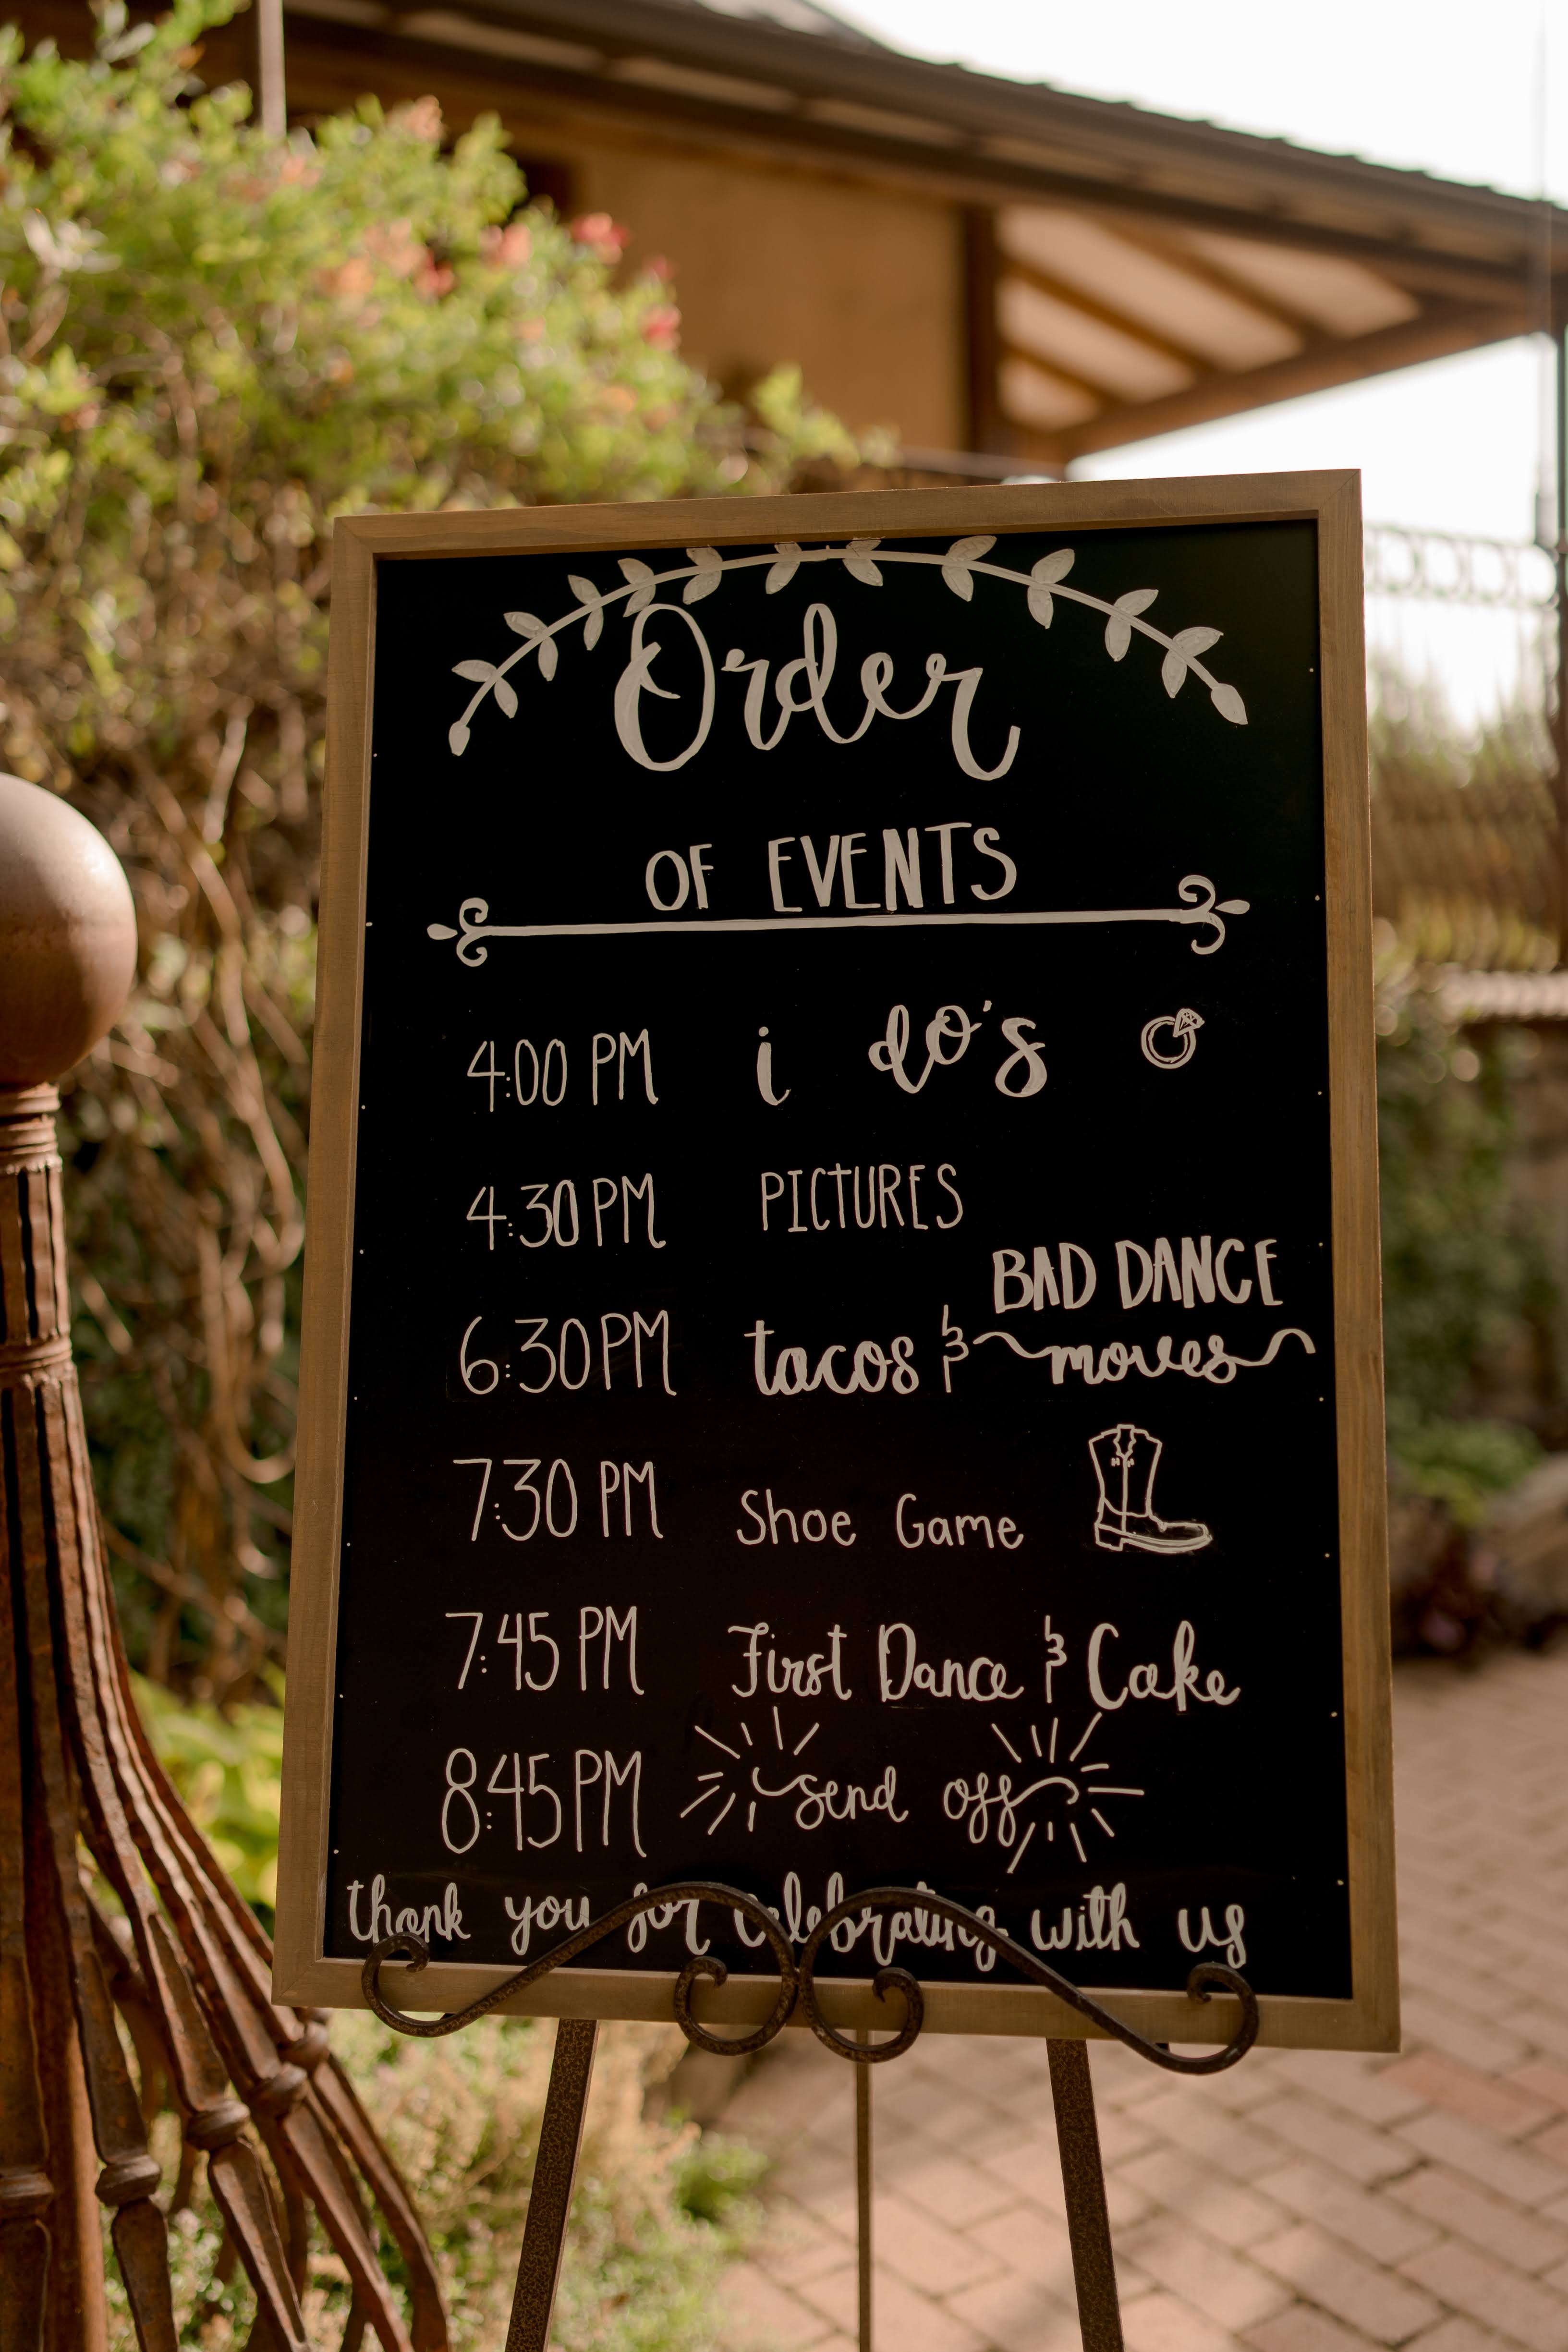 Order
OF EVENTS
4:00 PM i do's
4:30 PM PICTURES
6:30 PM tacos & BAD DANCE moves
7:30 PM Shoe Game
7:45 PM First Dance & Cake
8:45 PM send off
thank you for celebrating with us